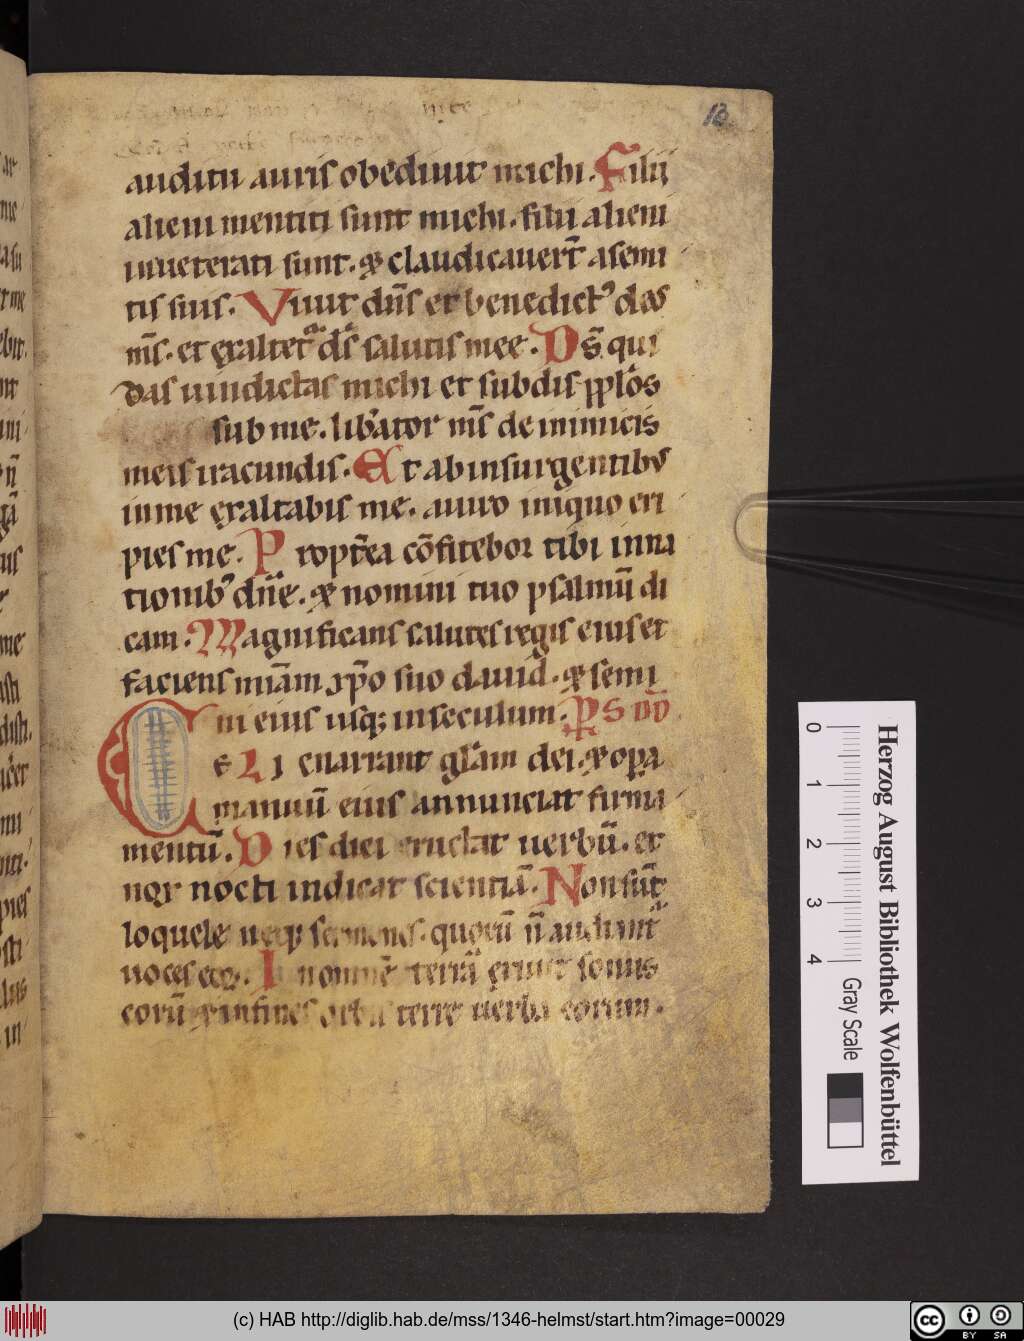 13
auditu auris obediuit michi. Filii
alieni mentiti sunt michi. filii alieni
inueterati sunt. & claudicauer̄t a semi
tis suis. Viuit dn̄s et benedict᾿ ds̄
ms̄. et exaltet᾿ ds̄ salutis mee. Ds̄ qui
das uindictas michi et subdis pplos
sub me. lib̓ator ms̄ de inimicis
meis iracundis. Et ab insurgentib᾿
in me exaltabis me. a uiro iniquo eri
pies me. Propt̓ea cōfitebor tibi in na
tionib᾿ dn̄e. & nomini tuo psalmū di
cam. Magnificans salutes regis eius et
faciens miām xp̄o suo dauid. & semi
ni eius usq; in seculum. PS DD
CELI enarrant glām dei. & opa
manuū eius annunciat firma
mentū. Dies diei eructat uerbū. et
nox nocti indicat scientiā. Non sūt
loquele neq; sermones. quorū n̄ audiant᾿
uoces eoꝝ. In omnē terrā exiuit sonus
eorū & in fines orbis terre uerba eorum.
0 1 2 3 4
Gray Scale
Herzog August Bibliothek Wolfenbüttel
(c) HAB http://diglib.hab.de/mss/1346-helmst/start.htm?image=00029
cc BY SA